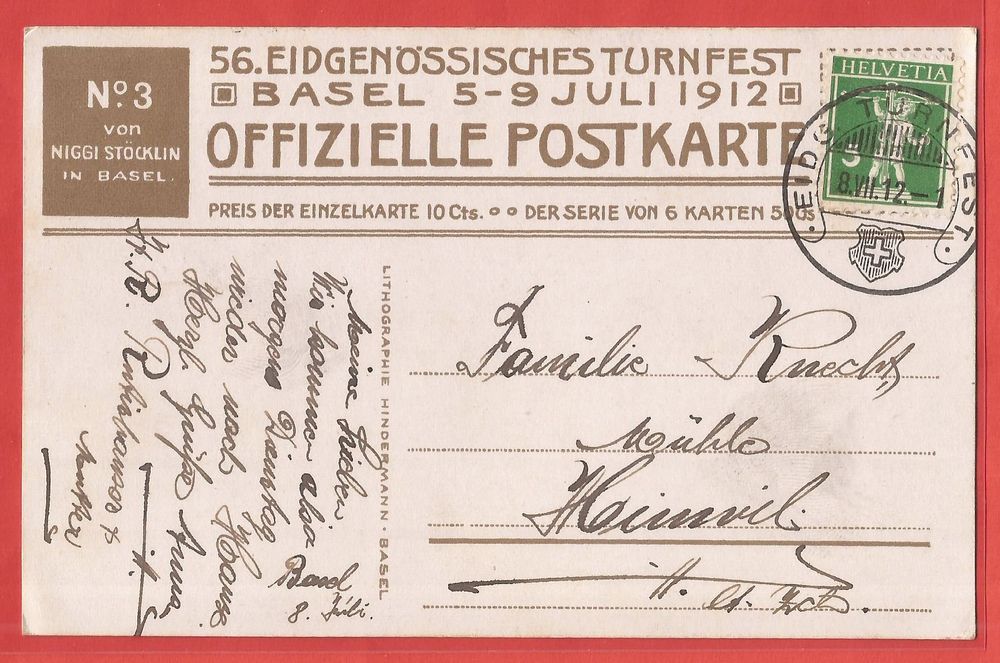 No. 3
von
NIGGI STÖCKLIN
IN BASEL.
56. EIDGENÖSSISCHES TURNFEST
BASEL 5-9 JULI 1912
OFFIZIELLE POSTKARTE
PREIS DER EINZELKARTE 10 Cts. DER SERIE VON 6 KARTEN 50 Cts
HELVETIA
5
EIDG. TURNFEST.
8.VII.12.–1
LITHOGRAPHIE HINDERMANN · BASEL
Basel
8. Juli.
Meine Lieben
Wir kommen also
morgen Dienstag
wieder nach Hause
Herzl. Grüße Anna
Familie Knecht
Mühle
Heinwil